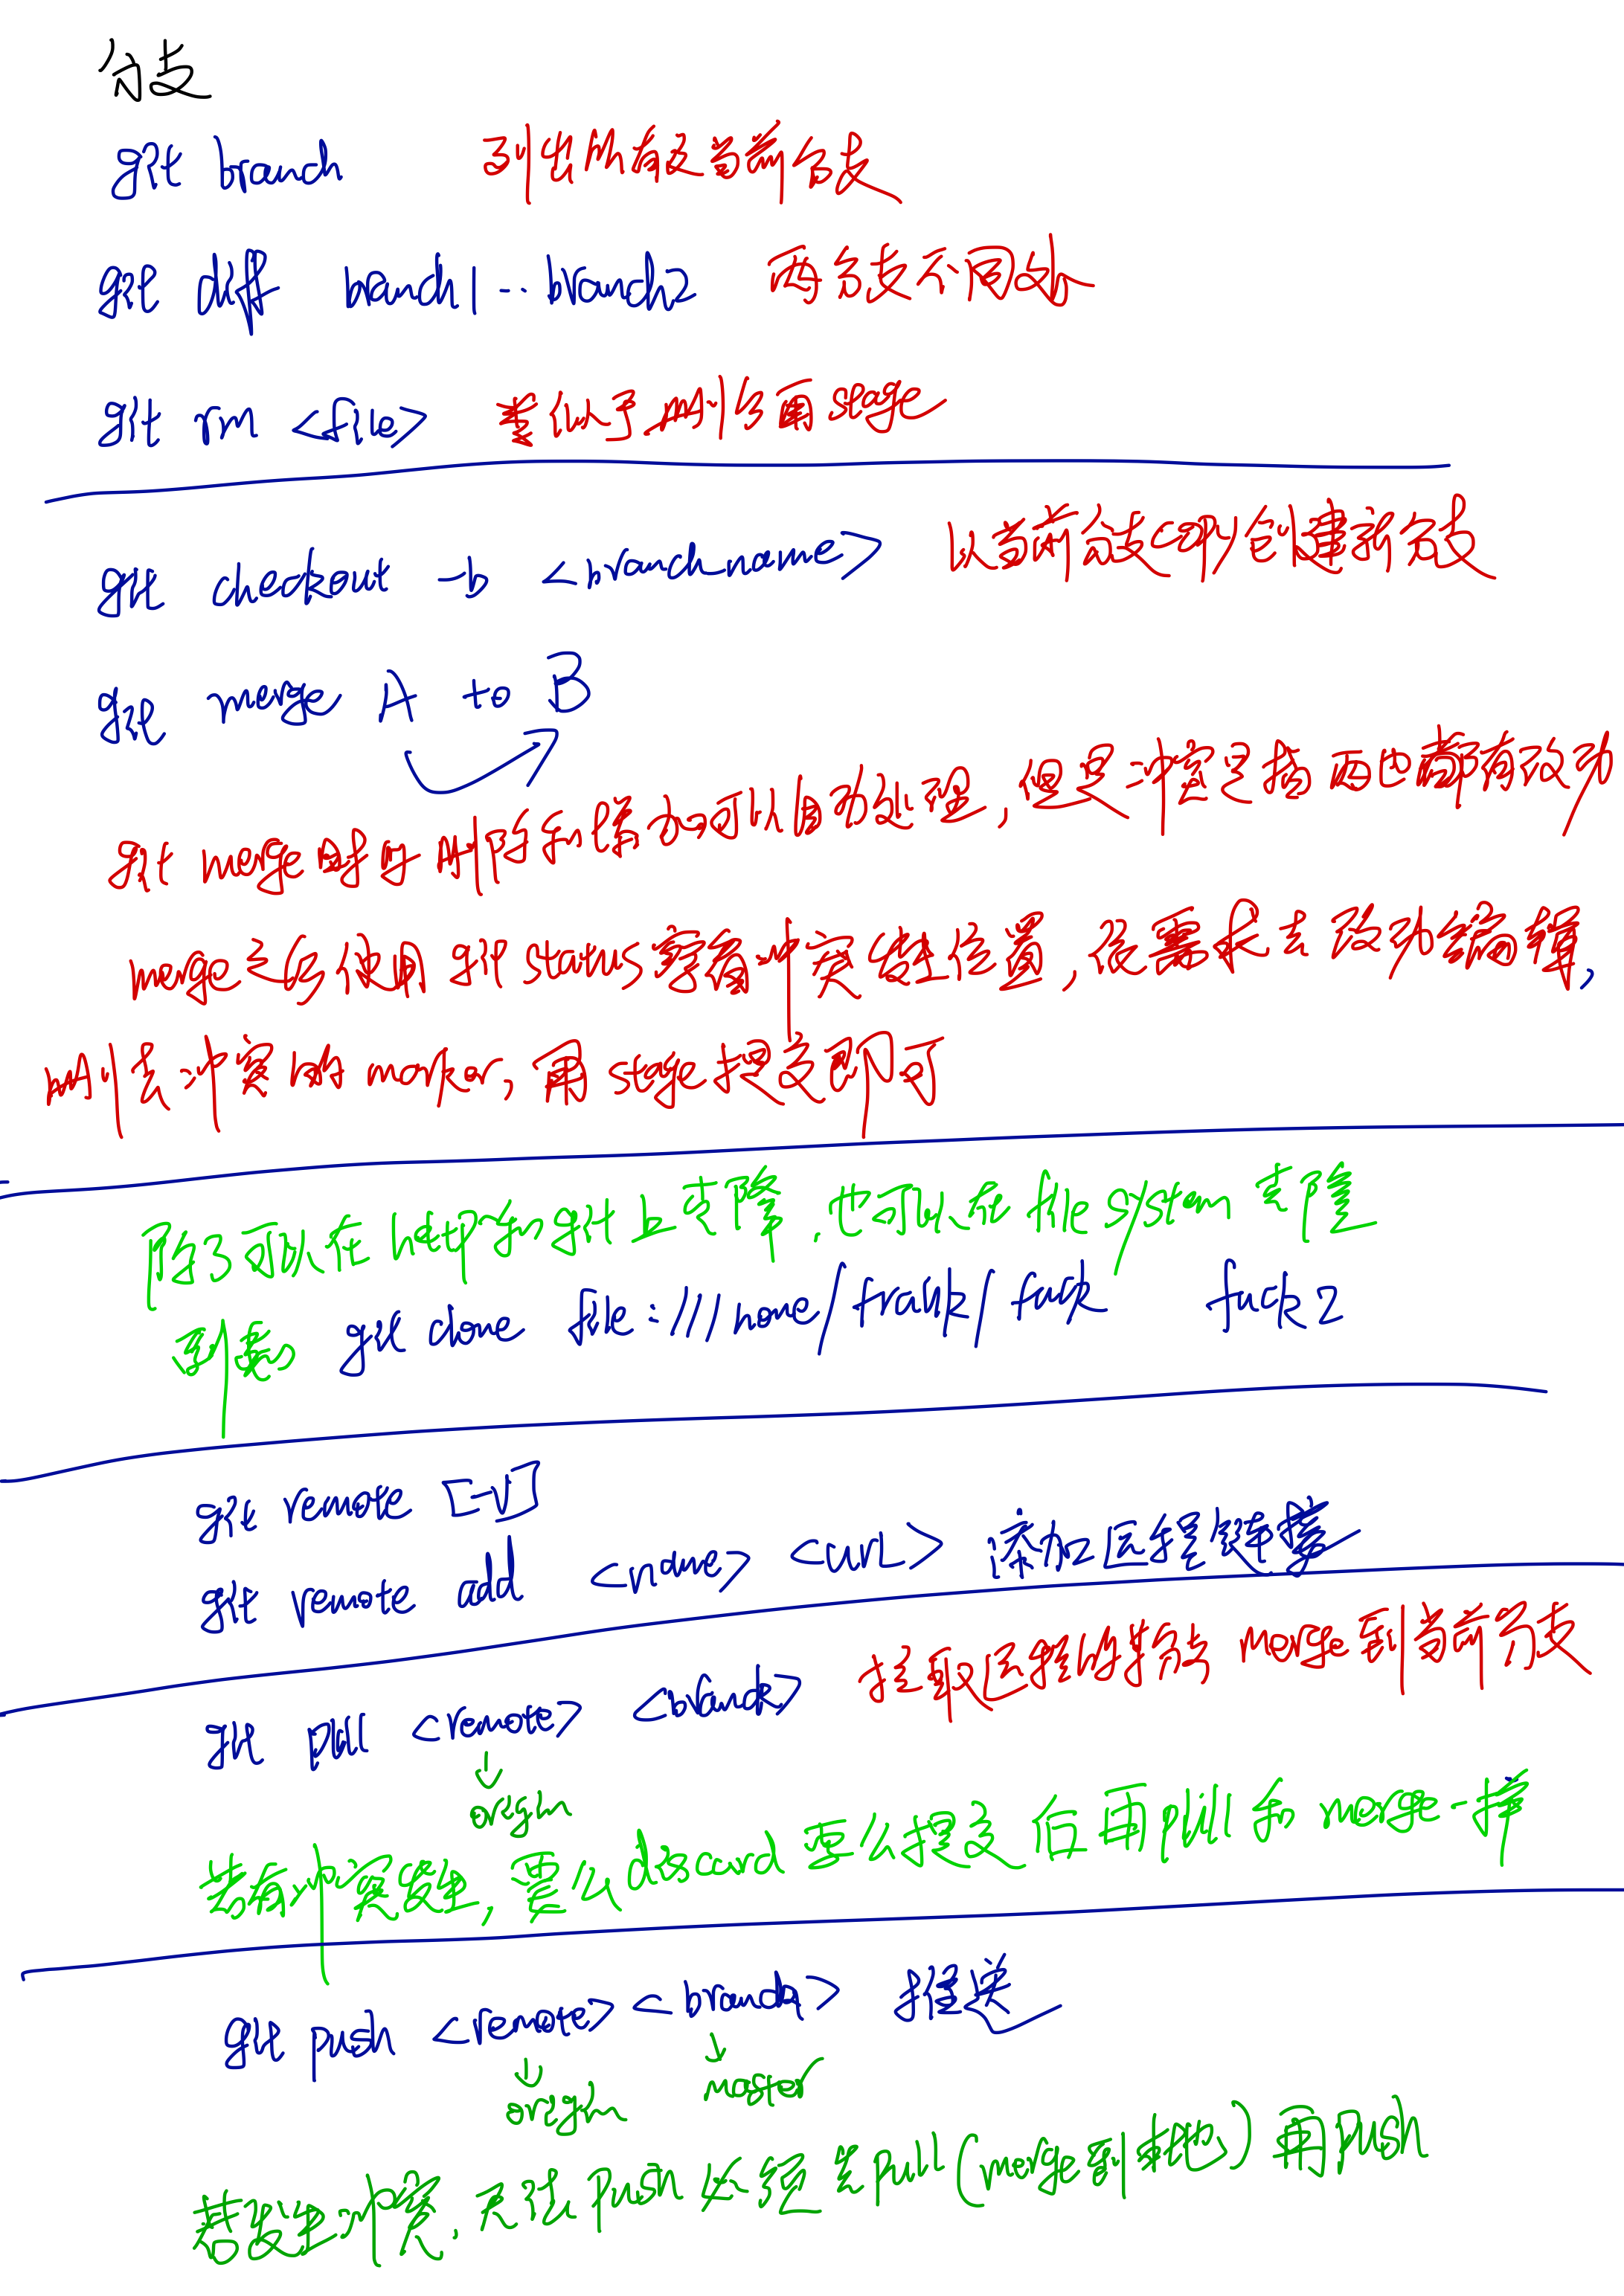 分支
git branch 列出所有及当前分支
git diff branch1..branch2 两分支不同处
git rm <file> 类似于删后再stage
git checkout -b <branch_name> 以当前分支copy创建新分支
git merge A to B
git merge时的删除和添加可以自动处理,但是冲突是指两边都有改动
merge之后使用git status察看冲突发生位置,依需求去改动编辑,
删去冲突的marker,再stage提交即可
除了可以在http和git上克隆,也可以在file system克隆
到 git clone file:///home/frank/fuck fuck2
git remote [-v]
git remote add <name> <url> 添加远程链接
git pull <remote> <branch> 拉取远程的 merge到当前分支
↓
origin
若有冲突发生,要么discard要么提交后再pull和merge一样
git push <remote> <branch> 推送
↓ ↓
origin master
若发生冲突,无法push必须先pull(merge到本地)再push